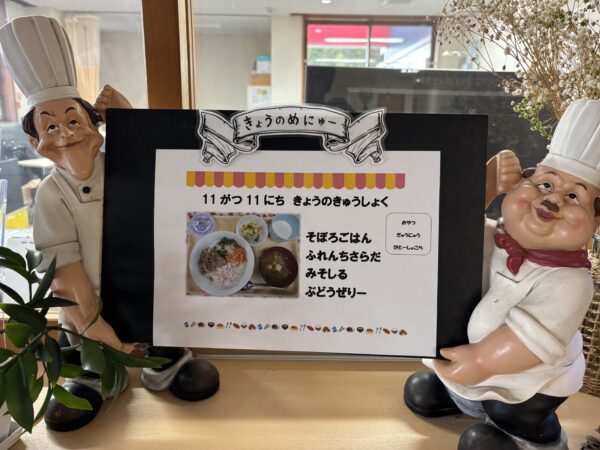 きょうのめにゅー
11がつ11にち きょうのきゅうしょく
そぼろごはん
ふれんちさらだ
みそしる
ぶどうぜりー
おやつ
ぎゅうにゅう
がとーしょこら